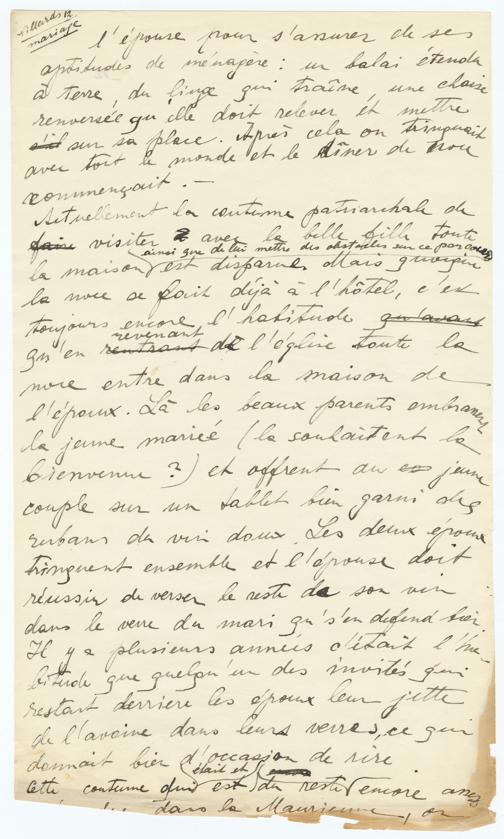 Villards 12
mariage
l'épouse pour s'assurer de ses
aptitudes de ménagère : un balai étendu
à terre, du linge qui traîne, une chaise
renversée qu'elle doit relever et mettre
sur sa place. Après cela on trinquait
avec tout le monde et le dîner de noce
commençait. —
Actuellement la coutume patriarchale de
faire visiter avec la belle fille toute
ainsi que de lui mettre des obstacles sur ce parcours
la maison est disparue. Mais quoique
la noce se fait déjà à l'hôtel, c'est
toujours encore l'habitude qu'avant
revenant
qu'en rentrant de l'église toute la
noce entre dans la maison de
l'époux. Là les beaux parents embrassent
la jeune mariée (la souhaitent la
bienvenue ?) et offrent au jeune
couple sur un tablet bien garni des
rubans du vin doux. Les deux époux
trinquent ensemble et l'épouse doit
réussir de verser le reste de son vin
dans le verre du mari qu's'en defend bien
Il y a plusieurs années c'était l'ha-
bitude que quelqu'un des invités qui
restait derriere les époux leur jette
de l'avoine dans leurs verres, ce qui
donnait bien d'occasion de rire
était et
cette coutume qui est du reste encore assez
dans la Maurienne, on